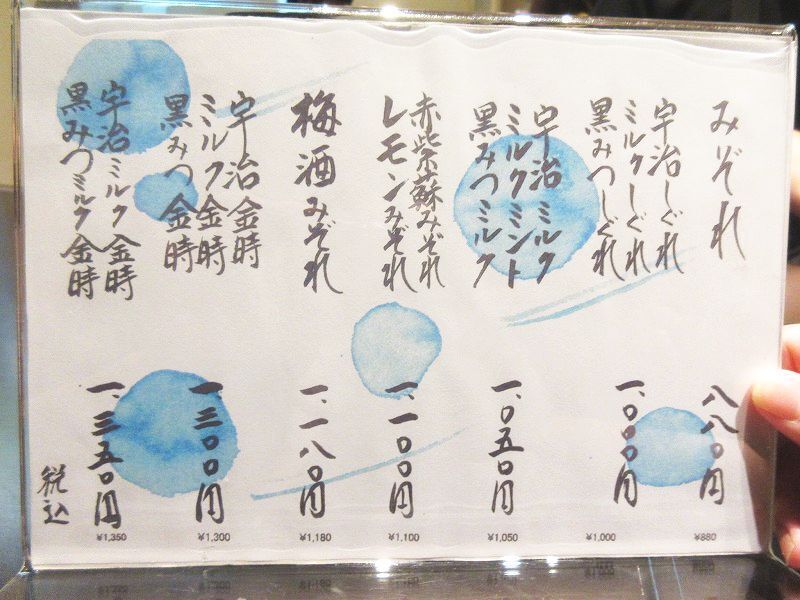 みぞれ
八八〇円
¥880
宇治しぐれ
ミルクしぐれ
黒みつしぐれ
一、〇〇〇円
¥1,000
宇治ミルク
ミルクミント
黒みつミルク
一、〇五〇円
¥1,050
赤紫蘇みぞれ
レモンみぞれ
一、一〇〇円
¥1,100
梅酒みぞれ
一、一八〇円
¥1,180
宇治金時
ミルク金時
黒みつ金時
一、三〇〇円
¥1,300
宇治ミルク金時
黒みつミルク金時
一、三五〇円
¥1,350
税込